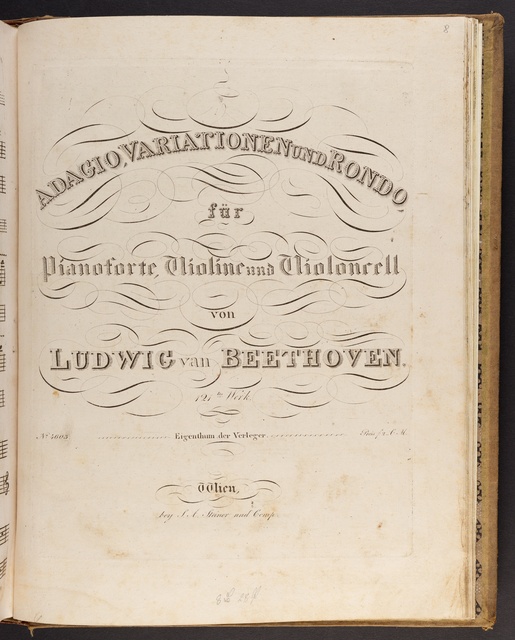 8
ADAGIO, VARIATIONEN UND RONDO,
für
Pianoforte, Violine und Violoncell
von
LUDWIG van BEETHOVEN.
121tes Werk.
Eigenthum der Verleger.
Wien,
bey S. A. Steiner und Comp.